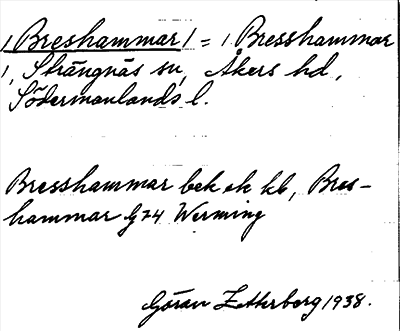 1 Breshammar 1 = 1 Bresshammar
1, Strängnäs sn, Åkers hd,
Södermanlands l.
Bresshammar bek ek kb, Bres-
hammar G24 Werming
Göran Zetterberg 1938.